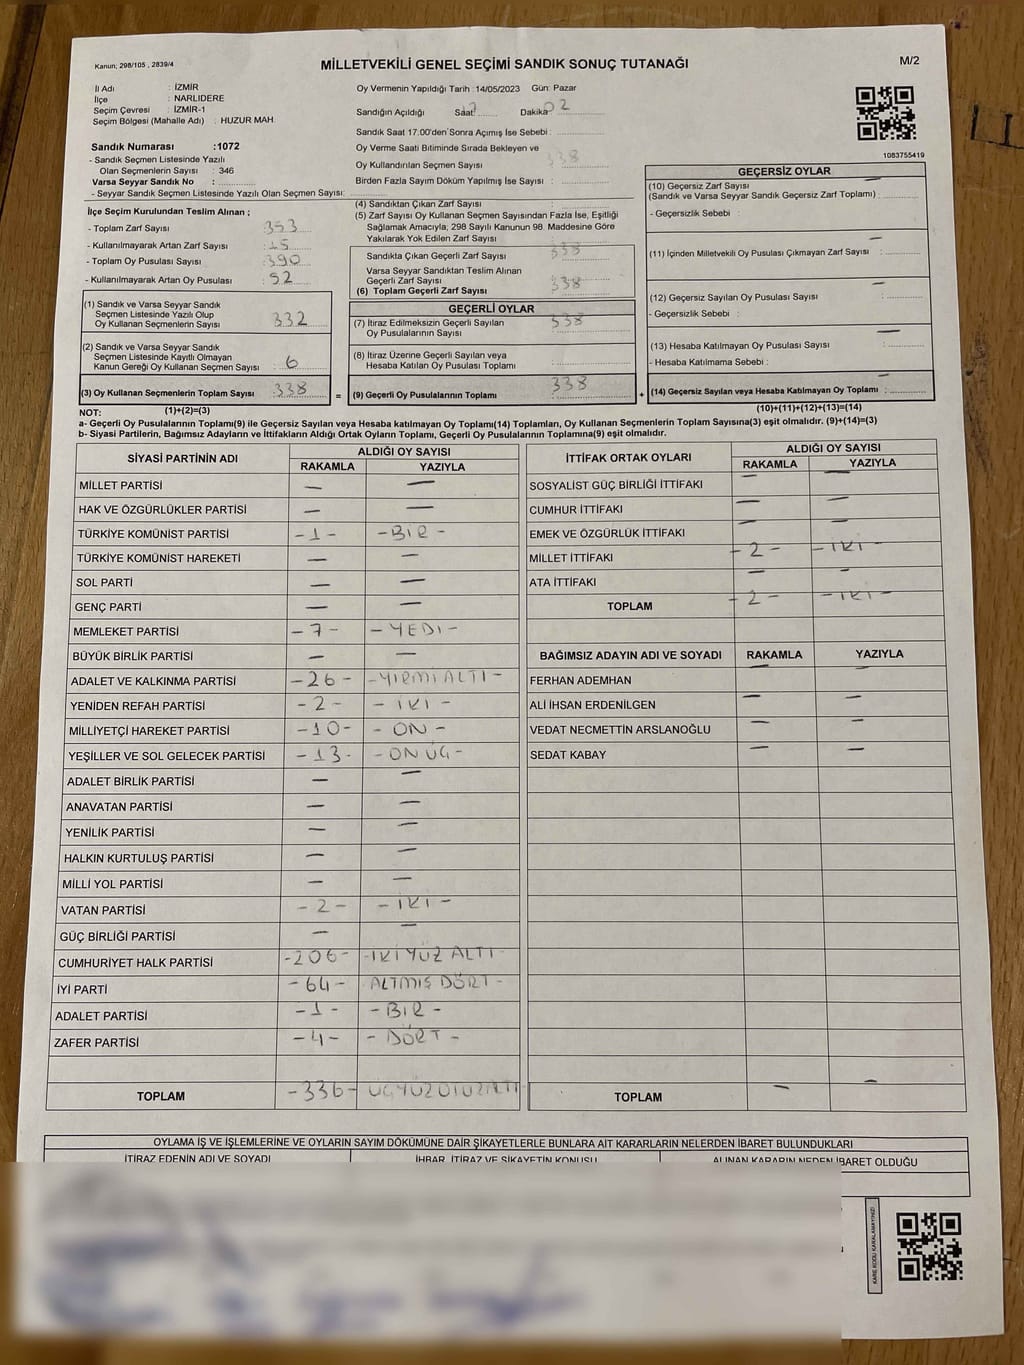 Kanun; 298/105 , 2839/4
MİLLETVEKİLİ GENEL SEÇİMİ SANDIK SONUÇ TUTANAĞI
M/2
İl Adı : İZMİR
İlçe : NARLIDERE
Seçim Çevresi : İZMİR-1
Seçim Bölgesi (Mahalle Adı) : HUZUR MAH.
Oy Vermenin Yapıldığı Tarih : 14/05/2023 Gün: Pazar
Sandığın Açıldığı Saat: 17 Dakika: 02
Sandık Saat 17.00'den Sonra Açımış İse Sebebi :
Sandık Numarası :1072
- Sandık Seçmen Listesinde Yazılı
Olan Seçmenlerin Sayısı : 346
Varsa Seyyar Sandık No :
- Seyyar Sandık Seçmen Listesinde Yazılı Olan Seçmen Sayısı:
Oy Verme Saati Bitiminde Sırada Bekleyen ve
Oy Kullandırılan Seçmen Sayısı : 338
Birden Fazla Sayım Döküm Yapılmış İse Sayısı :
1083755419
İlçe Seçim Kurulundan Teslim Alınan ;
- Toplam Zarf Sayısı : 353
- Kullanılmayarak Artan Zarf Sayısı : 15
- Toplam Oy Pusulası Sayısı : 390
- Kullanılmayarak Artan Oy Pusulası : 52
(1) Sandık ve Varsa Seyyar Sandık
Seçmen Listesinde Yazılı Olup
Oy Kullanan Seçmenlerin Sayısı : 332
(2) Sandık ve Varsa Seyyar Sandık
Seçmen Listesinde Kayıtlı Olmayan
Kanun Gereği Oy Kullanan Seçmen Sayısı : 6
(3) Oy Kullanan Seçmenlerin Toplam Sayısı : 338
(1)+(2)=(3)
(4) Sandıktan Çıkan Zarf Sayısı :
(5) Zarf Sayısı Oy Kullanan Seçmen Sayısından Fazla İse, Eşitliği
Sağlamak Amacıyla, 298 Sayılı Kanunun 98. Maddesine Göre
Yakılarak Yok Edilen Zarf Sayısı :
Sandıkta Çıkan Geçerli Zarf Sayısı : 338
Varsa Seyyar Sandıktan Teslim Alınan
Geçerli Zarf Sayısı :
(6) Toplam Geçerli Zarf Sayısı : 338
GEÇERLİ OYLAR
(7) İtiraz Edilmeksizin Geçerli Sayılan
Oy Pusulalarının Sayısı : 338
(8) İtiraz Üzerine Geçerli Sayılan veya
Hesaba Katılan Oy Pusulası Toplamı :
= (9) Geçerli Oy Pusulalarının Toplamı : 338 +
GEÇERSİZ OYLAR
(10) Geçersiz Zarf Sayısı
(Sandık ve Varsa Seyyar Sandık Geçersiz Zarf Toplamı) : —
- Geçersizlik Sebebi :
(11) İçinden Milletvekili Oy Pusulası Çıkmayan Zarf Sayısı : —
(12) Geçersiz Sayılan Oy Pusulası Sayısı : —
- Geçersizlik Sebebi :
(13) Hesaba Katılmayan Oy Pusulası Sayısı : —
- Hesaba Katılmama Sebebi :
(14) Geçersiz Sayılan veya Hesaba Katılmayan Oy Toplamı : —
(10)+(11)+(12)+(13)=(14)
NOT:
a- Geçerli Oy Pusulalarının Toplamı(9) ile Geçersiz Sayılan veya Hesaba katılmayan Oy Toplamı(14) Toplamları, Oy Kullanan Seçmenlerin Toplam Sayısına(3) eşit olmalıdır. (9)+(14)=(3)
b- Siyasi Partilerin, Bağımsız Adayların ve İttifakların Aldığı Ortak Oyların Toplamı, Geçerli Oy Pusulalarının Toplamına(9) eşit olmalıdır.
SİYASİ PARTİNİN ADI ALDIĞI OY SAYISI
RAKAMLA YAZIYLA
MİLLET PARTİSİ — —
HAK VE ÖZGÜRLÜKLER PARTİSİ — —
TÜRKİYE KOMÜNİST PARTİSİ -1- -BİR-
TÜRKİYE KOMÜNİST HAREKETİ — —
SOL PARTİ — —
GENÇ PARTİ — —
MEMLEKET PARTİSİ -7- -YEDİ-
BÜYÜK BİRLİK PARTİSİ — —
ADALET VE KALKINMA PARTİSİ -26- -YİRMİALTI-
YENİDEN REFAH PARTİSİ -2- -İKİ-
MİLLİYETÇİ HAREKET PARTİSİ -10- -ON-
YEŞİLLER VE SOL GELECEK PARTİSİ -13- -ONÜÇ-
ADALET BİRLİK PARTİSİ — —
ANAVATAN PARTİSİ — —
YENİLİK PARTİSİ — —
HALKIN KURTULUŞ PARTİSİ — —
MİLLİ YOL PARTİSİ — —
VATAN PARTİSİ -2- -İKİ-
GÜÇ BİRLİĞİ PARTİSİ — —
CUMHURİYET HALK PARTİSİ -206- -İKİYÜZ ALTI-
İYİ PARTİ -64- ALTMIŞ DÖRT-
ADALET PARTİSİ -1- -BİR-
ZAFER PARTİSİ -4- -DÖRT-
TOPLAM -336- ÜÇYÜZOTUZALTI
İTTİFAK ORTAK OYLARI ALDIĞI OY SAYISI
RAKAMLA YAZIYLA
SOSYALİST GÜÇ BİRLİĞİ İTTİFAKI — —
CUMHUR İTTİFAKI — —
EMEK VE ÖZGÜRLÜK İTTİFAKI — —
MİLLET İTTİFAKI -2- -İKİ-
ATA İTTİFAKI — —
TOPLAM -2- -İKİ-
BAĞIMSIZ ADAYIN ADI VE SOYADI RAKAMLA YAZIYLA
FERHAN ADEMHAN — —
ALİ İHSAN ERDENİLGEN — —
VEDAT NECMETTİN ARSLANOĞLU — —
SEDAT KABAY — —
TOPLAM — —
OYLAMA İŞ VE İŞLEMLERİNE VE OYLARIN SAYIM DÖKÜMÜNE DAİR ŞİKAYETLERLE BUNLARA AİT KARARLARIN NELERDEN İBARET BULUNDUKLARI
İTİRAZ EDENİN ADI VE SOYADI İHBAR, İTİRAZ VE ŞİKAYETİN KONUSU ALINAN KARARIN NEDEN İBARET OLDUĞU
KARE KODU KARALAMAYINIZ!